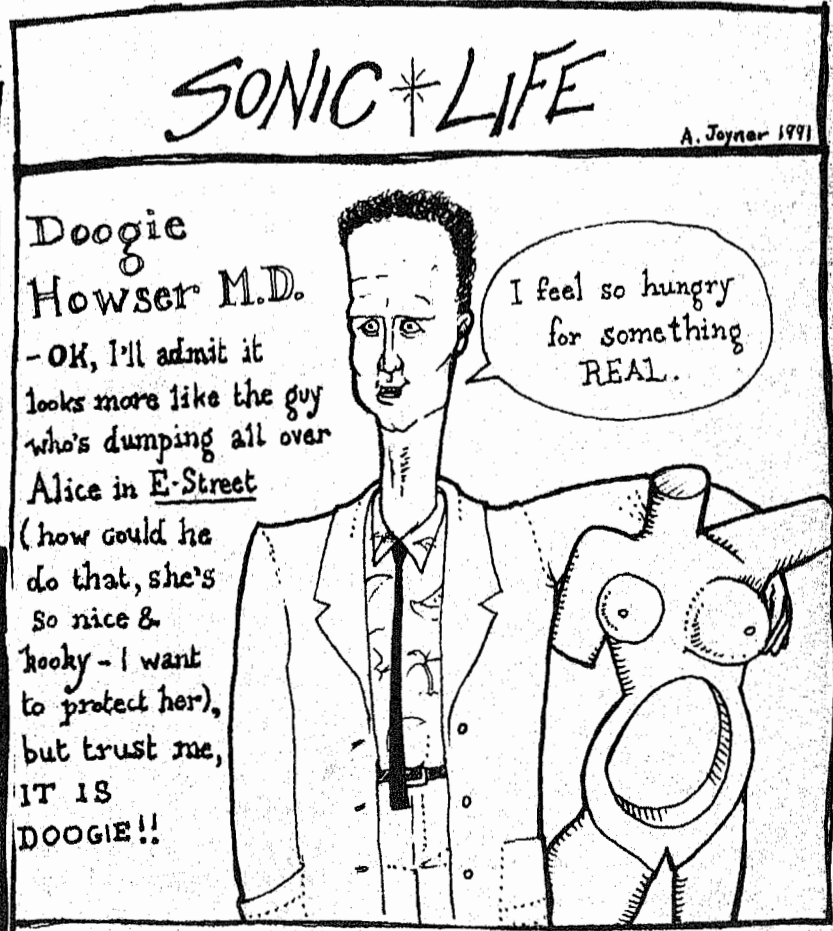 SONIC LIFE
A. Joyner 1991
Doogie
Howser M.D.
- OK, I'll admit it
looks more like the guy
who's dumping all over
Alice in E-Street
(how could he
do that, she's
so nice &
kooky - I want
to protect her),
but trust me,
IT IS
DOOGIE!!
I feel so hungry
for something
REAL.